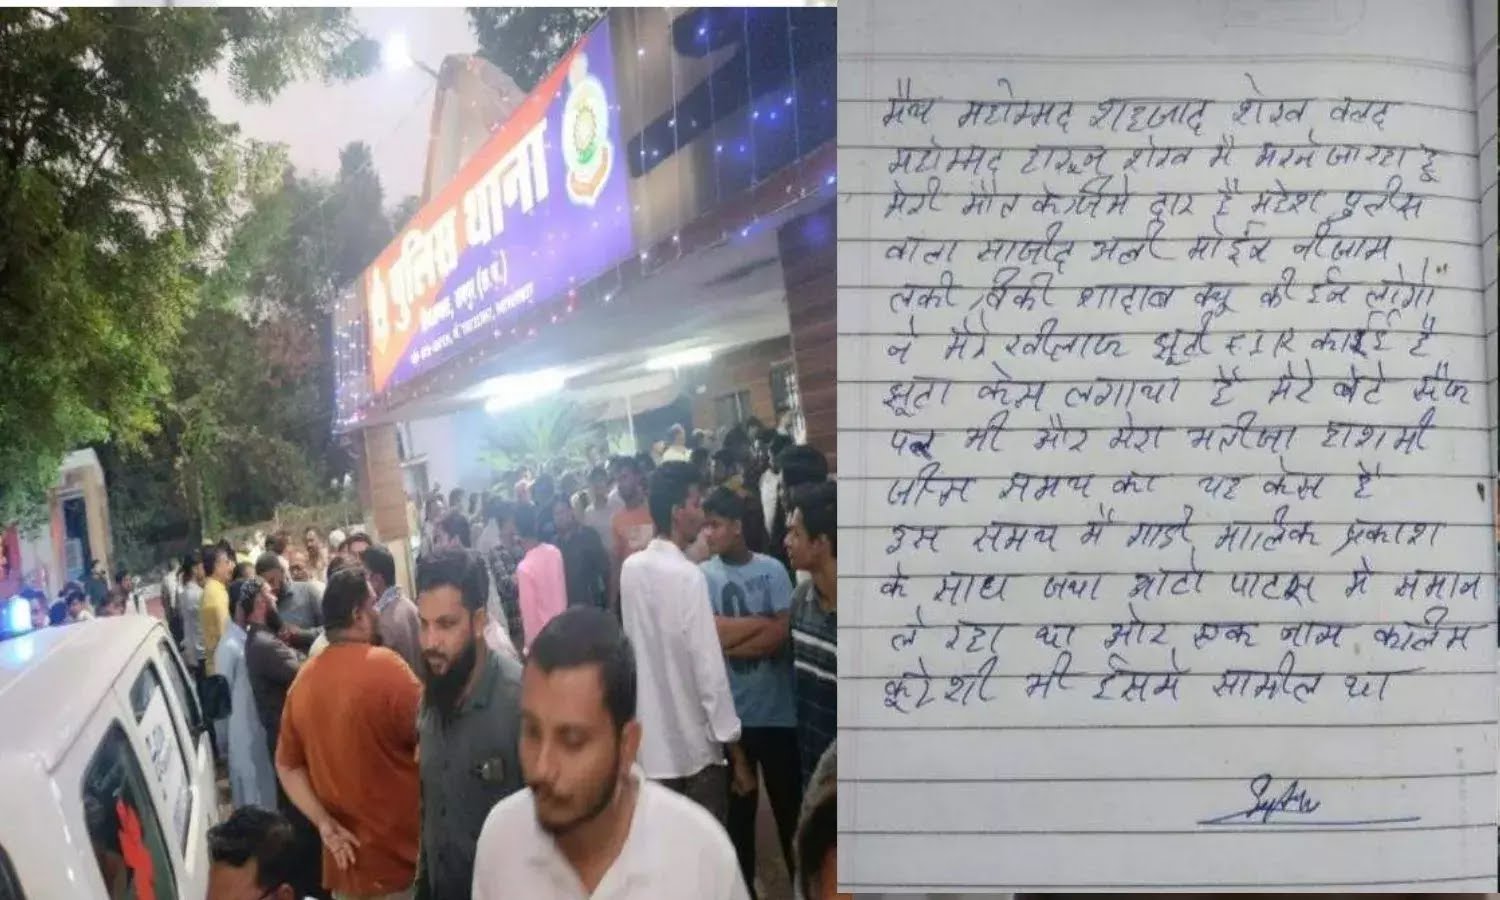 पुलिस थाना
मैय महोम्मद शहजाद शेख वल्द
महोम्मद हारून शेख मै मरने जा रहा हू
मेरी मौत के जिमेदार है महेश पुलीस
वाला साजीद अली मोईन नीजाम
लकी, विकी शादाब क्यू की ईन लोगो
ने मेरे खीलाफ झूटी FIR कराई है
झूटा केस लगाया है मेरे बेटे सैफ
पर भी और मेरा भतीजा हाशमी
जीस समय का यह केस है
इस समय मै गाडी मालिक प्रकाश
के साथ जया ओटो पाटस मे समान
ले रहा था और एक नाम कालिम
कूरेशी भी ईसमे सामील था